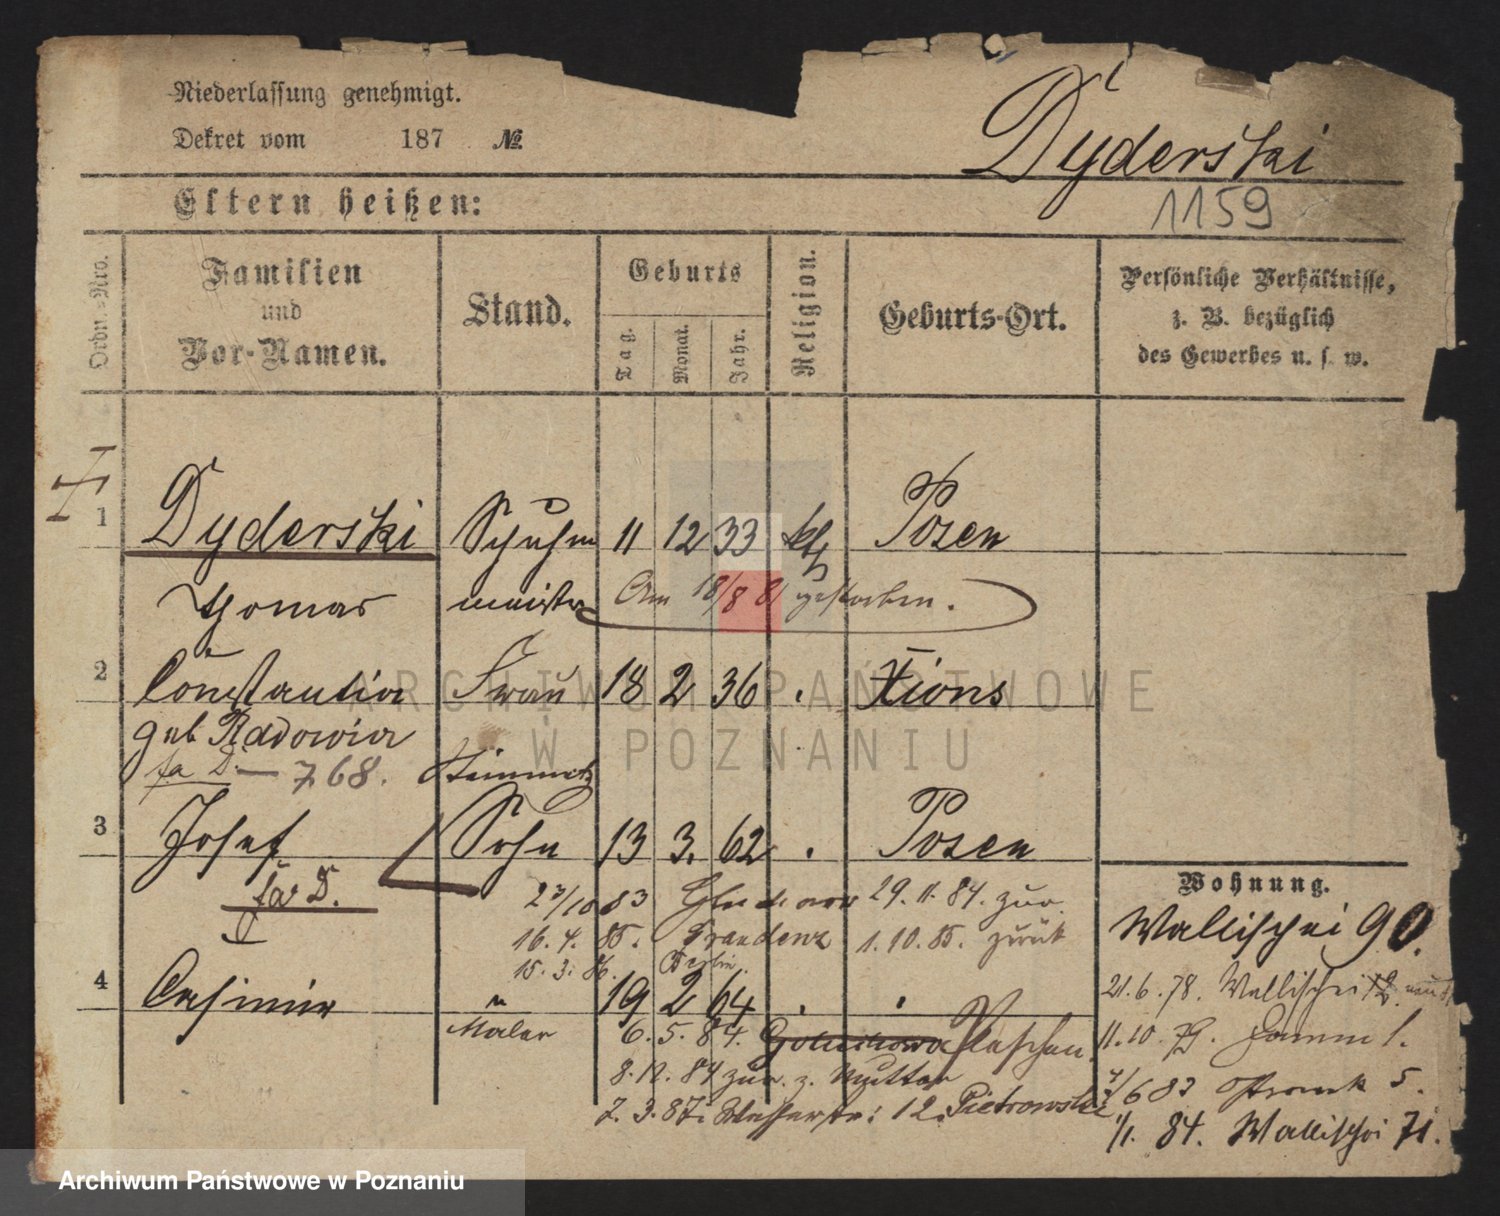 Niederlassung genehmigt.
Dekret vom 187 №
Dyderski
Eltern heißen:
1159
Ordn.-Nro.
Familien
und
Vor-Namen.
Stand.
Geburts
Tag.
Monat.
Jahr.
Religion.
Geburts-Ort.
Persönliche Verhältnisse,
z. B. bezüglich
des Gewerbes u. s. w.
1 Dyderski Schuhm 11 12 33 kth Posen
Thomas meister Am 18/8 81 gestorben.
2 Constantia Frau 18 2 36 . Xions
geb Radowicz
fa D. — 768.
3 Josef Sohn 13 3. 62 . Posen
fas D. 27/10 83 29. 11. 84. zur.
16. 4. 85. Graudenz 1. 10. 85. zurük
15. 3. 86. Berlin.
4 Casimir " 19 2 64 . .
Maler 6. 5. 84. Pleschen.
8. 12. 84 zur. z. Mutter
7. 3. 87. Wasserstr: 12. Pietrowski
Wohnung.
Wallischei 90.
21. 6. 78. Wallischei
11. 10. 79. Damm 1.
7/6 83 5.
1/1. 84. Wallischei 71.
ARCHIWUM PAŃSTWOWE
W POZNANIU
Archiwum Państwowe w Poznaniu